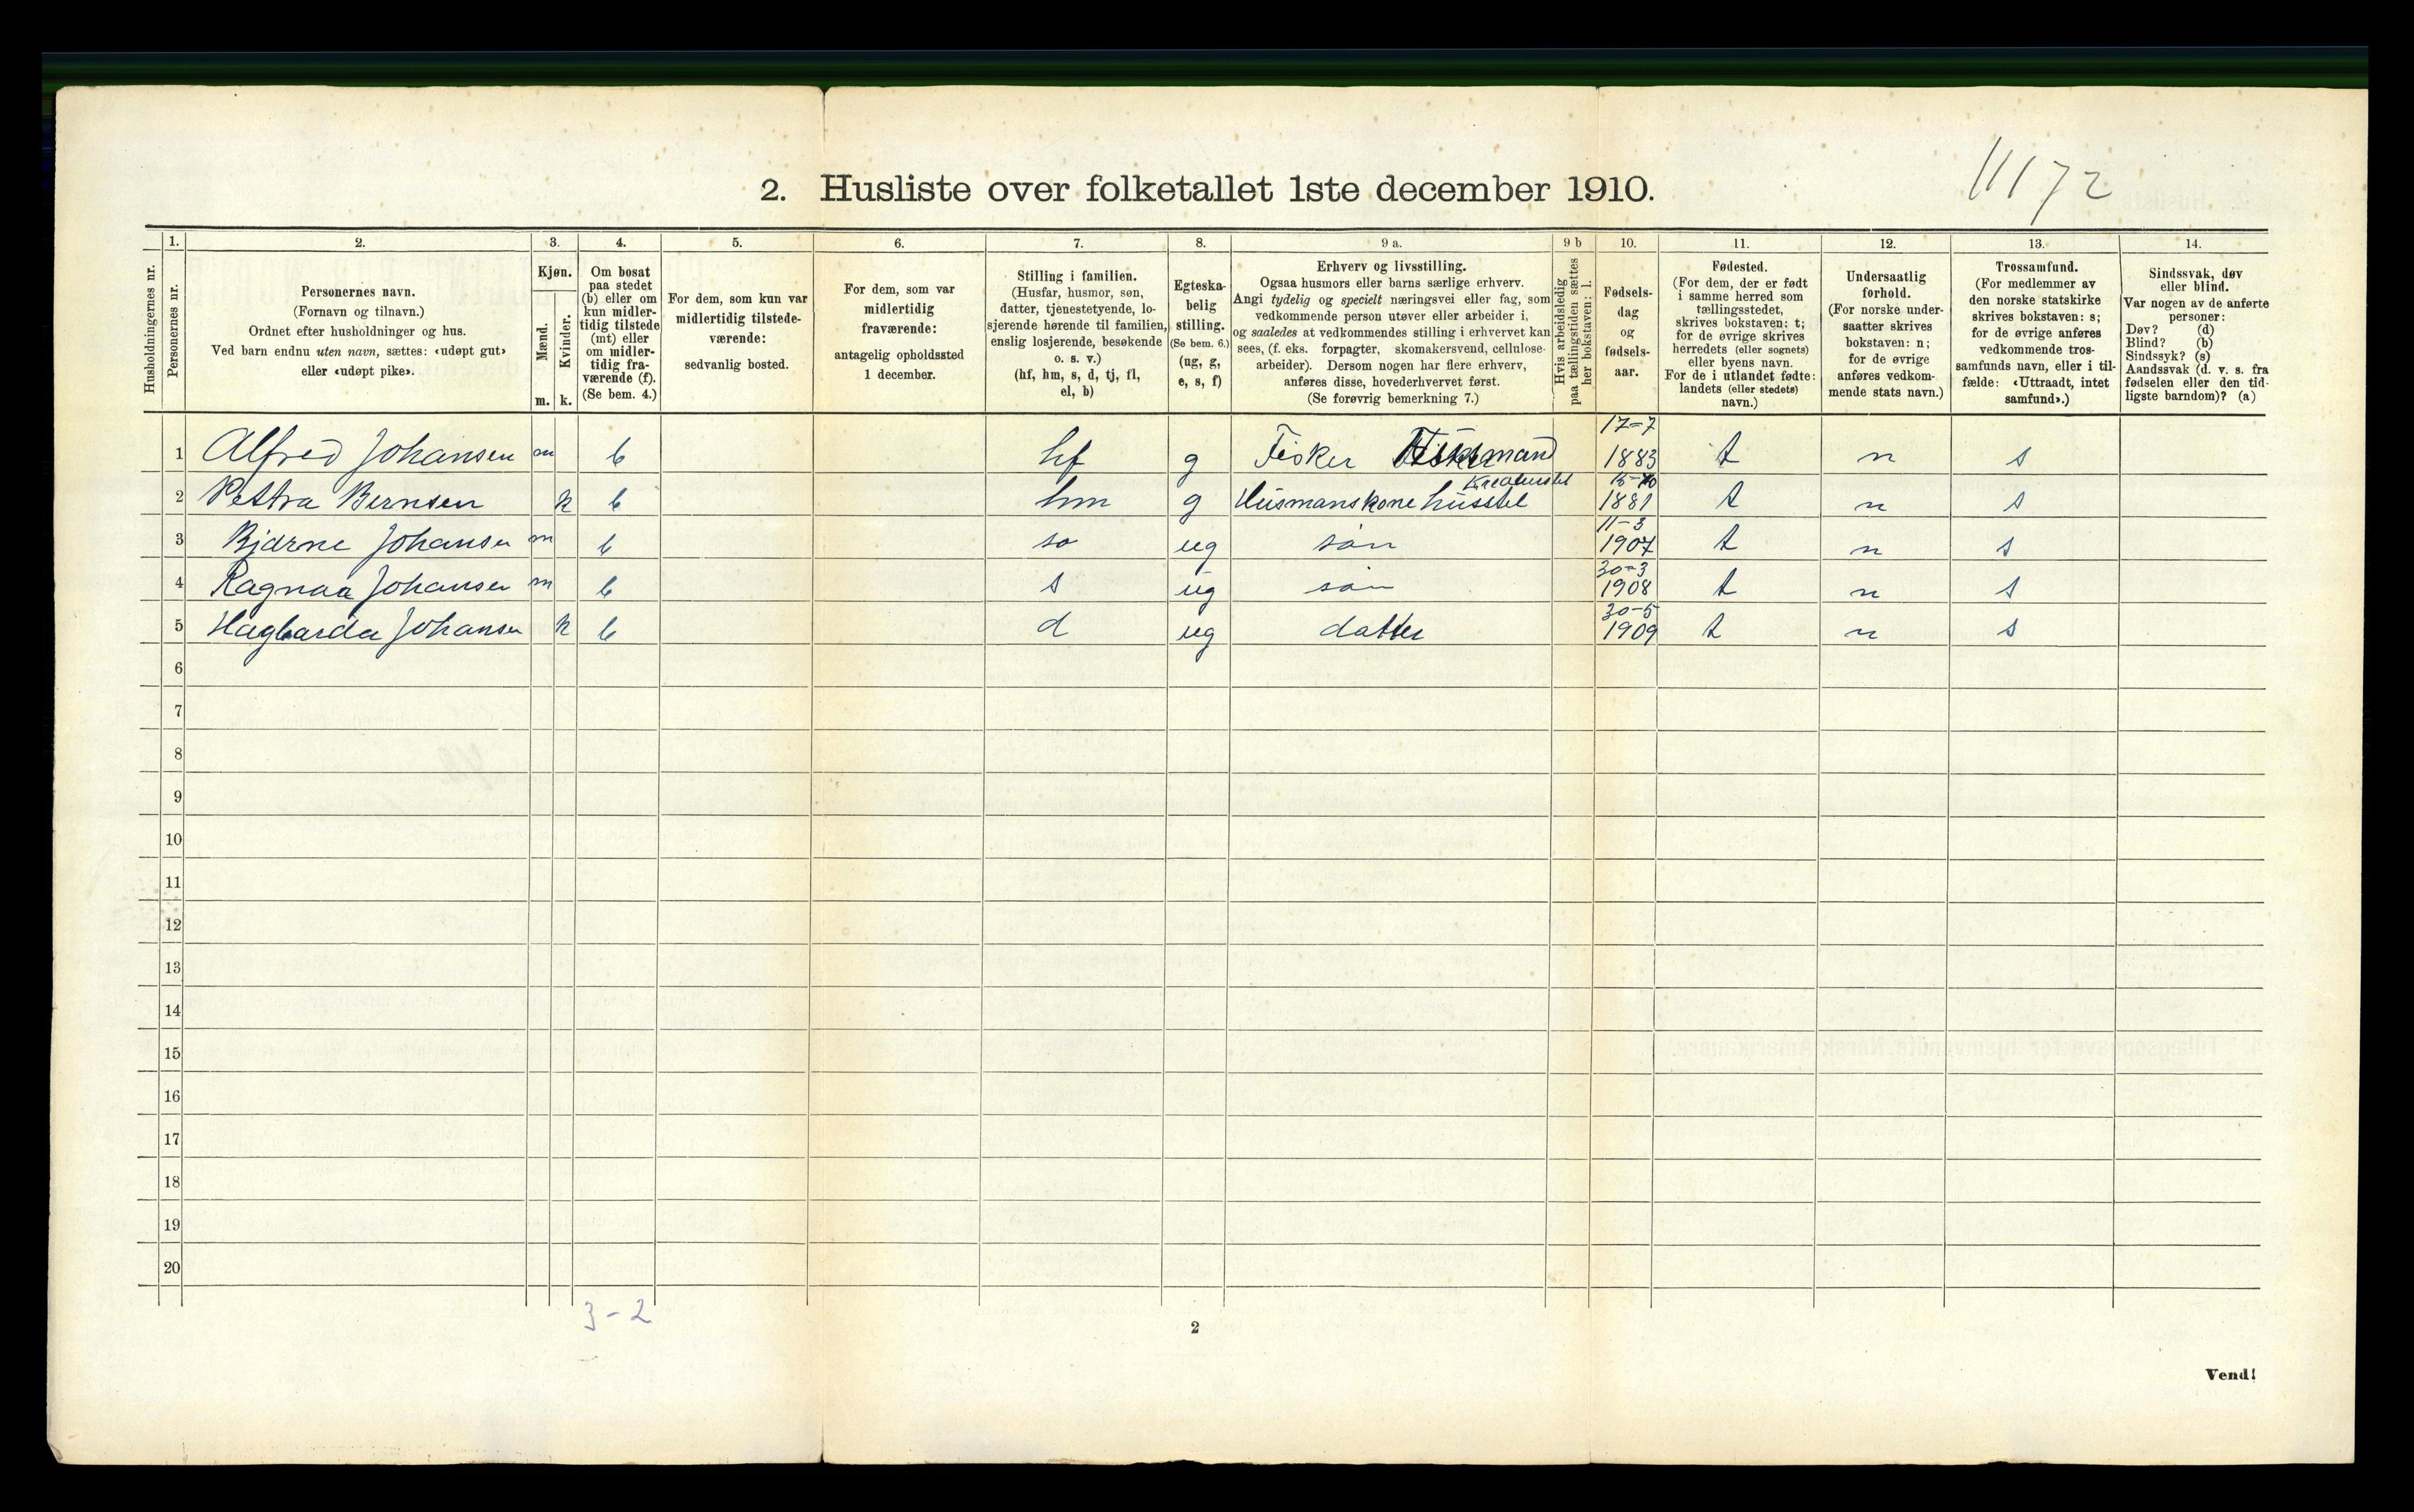 11172
2. Husliste over folketallet 1ste december 1910.
Husholdningernes nr.
1.
Personernes nr.
2.
Personernes navn.
(Fornavn og tilnavn.)
Ordnet efter husholdninger og hus.
Ved barn endnu uten navn, sættes: «udøpt gut»
eller «udøpt pike».
3.
Kjøn.
Mænd.
Kvinder.
m. k.
4.
Om bosat
paa stedet
(b) eller om
kun midler-
tidig tilstede
(mt) eller
om midler-
tidig fra-
værende (f).
(Se bem. 4.)
5.
For dem, som kun var
midlertidig tilstede-
værende:
sedvanlig bosted.
6.
For dem, som var
midlertidig
fraværende:
antagelig opholdssted
1 december.
7.
Stilling i familien.
(Husfar, husmor, søn,
datter, tjenestetyende, lo-
sjerende hørende til familien,
enslig losjerende, besøkende
o. s. v.)
(hf, hm, s, d, tj, fl,
el, b)
8.
Egteska-
belig
stilling.
(Se bem. 6.)
(ug, g,
e, s, f)
9 a.
Erhverv og livsstilling.
Ogsaa husmors eller barns særlige erhverv.
Angi tydelig og specielt næringsvei eller fag, som
vedkommende person utøver eller arbeider i,
og saaledes at vedkommendes stilling i erhvervet kan
sees, (f. eks. forpagter, skomakersvend, cellulose-
arbeider). Dersom nogen har flere erhverv,
anføres disse, hovederhvervet først.
(Se forøvrig bemerkning 7.)
9 b
Hvis arbeidsledig
paa tællingstiden sættes
her bokstaven: l.
10.
Fødsels-
dag
og
fødsels-
aar.
11.
Fødested.
(For dem, der er født
i samme herred som
tællingsstedet,
skrives bokstaven: t;
for de øvrige skrives
herredets (eller sognets)
eller byens navn.
For de i utlandet fødte:
landets (eller stedets)
navn.)
12.
Undersaatlig
forhold.
(For norske under-
saatter skrives
bokstaven: n;
for de øvrige
anføres vedkom-
mende stats navn.)
13.
Trossamfund.
(For medlemmer av
den norske statskirke
skrives bokstaven: s;
for de øvrige anføres
vedkommende tros-
samfunds navn, eller i til-
fælde: «Uttraadt, intet
samfund».)
14.
Sindssvak, døv
eller blind.
Var nogen av de anførte
personer:
Døv? (d)
Blind? (b)
Sindssyk? (s)
Aandssvak (d. v. s. fra
fødselen eller den tid-
ligste barndom)? (a)
1 Alfred Johansen m b hf g Fisker Husmand 17-7 1883 t n s
2 Pettra Bernsen k b hm g Husmanskone husstel Kreaturstel 1881 t n s
3 Bjarne Johansen m b so ug sön 11-3 1907 t n s
4 Ragnaa Johansen m b s ug sön 30-3 1908 t n s
5 Hagbarda Johansen k b d ug datter 30-5 1909 t n s
6
7
8
9
10
11
12
13
14
15
16
17
18
19
20
3-2
2
Vend!